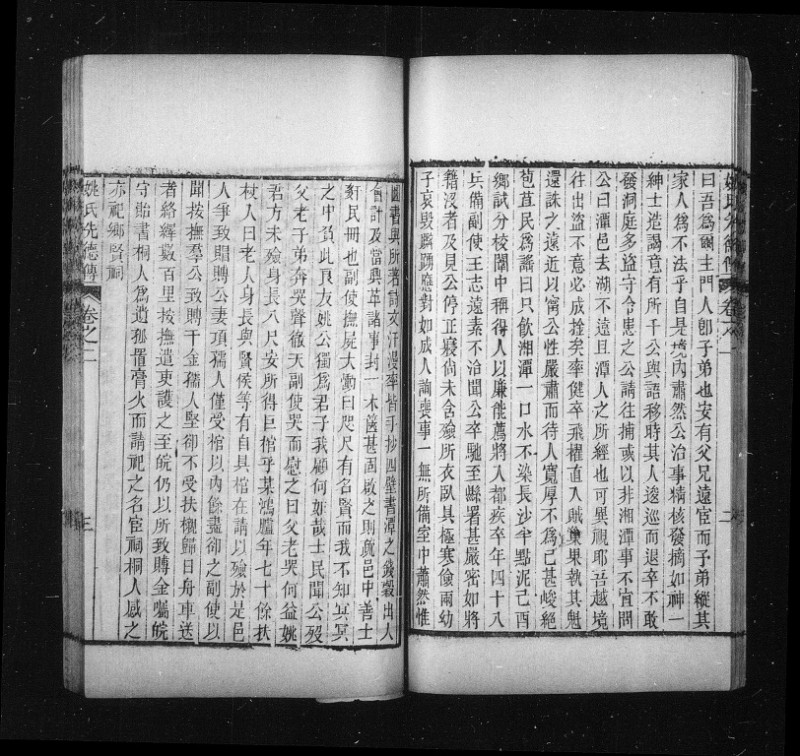 姚氏先德傳 卷之二 二
曰吾為爾主門人卽子弟也安有父兄遠宦而子弟縱其
家人為不法乎自是境內肅然公治事精核發摘如神一
紳士造謁意有所干公與語移時其人逡巡而退卒不敢
發洞庭多盜守令患之公請往捕或以非湘潭事不宜問
公曰潭邑去湖不遠且潭人之所經也可異視耶吾越境
往出盜不意必成擒矣率健卒飛櫂直入賊巢果執其魁
還誅之遠近以甯公性嚴肅而待人寬厚不為已甚峻絕
苞苴民為謠曰只飲湘潭一口水不染長沙半點泥己酉
鄉試分校闈中稱得人以廉能薦將入都疾卒年四十八
兵備副使王志遠素不治聞公卒馳至縣署甚嚴密如將
籍沒者及見公停正寢尚未含殮所衣臥具極寒儉兩幼
子哀毀躃踊應對如成人詢喪事一無所備室中蕭然惟
圖書與所著詩文汗漫率皆手抄四壁書潭之錢穀出入
會計及當興革諸事封一木篋甚固啟之則廉邑中善士
奸民冊也副使撫屍大慟曰咫尺有名賢而我不知冥冥
之中負此良友姚公獨為君子我顧何如哉士民聞公歿
父老子弟奔哭聲徹天副使哭而慰之曰父老哭何益姚
君方未殮身長八尺安所得巨棺乎某鴻臚年七十餘扶
杖入曰老人身長與賢侯等有自具棺在請以殮於是邑
人爭致賵賻公妻項孺人僅受棺以內餘盡卻之副使以
聞按撫羣公致賻千金孺人堅卻不受扶櫬歸日舟車送
者絡繹數百里按撫遣吏護之至皖仍以所致賻金囑皖
守貽書桐人為遺孤置膏火而請祀之名宦祠桐人感之
亦祀鄉賢祠
姚氏先德傳 卷之二 三